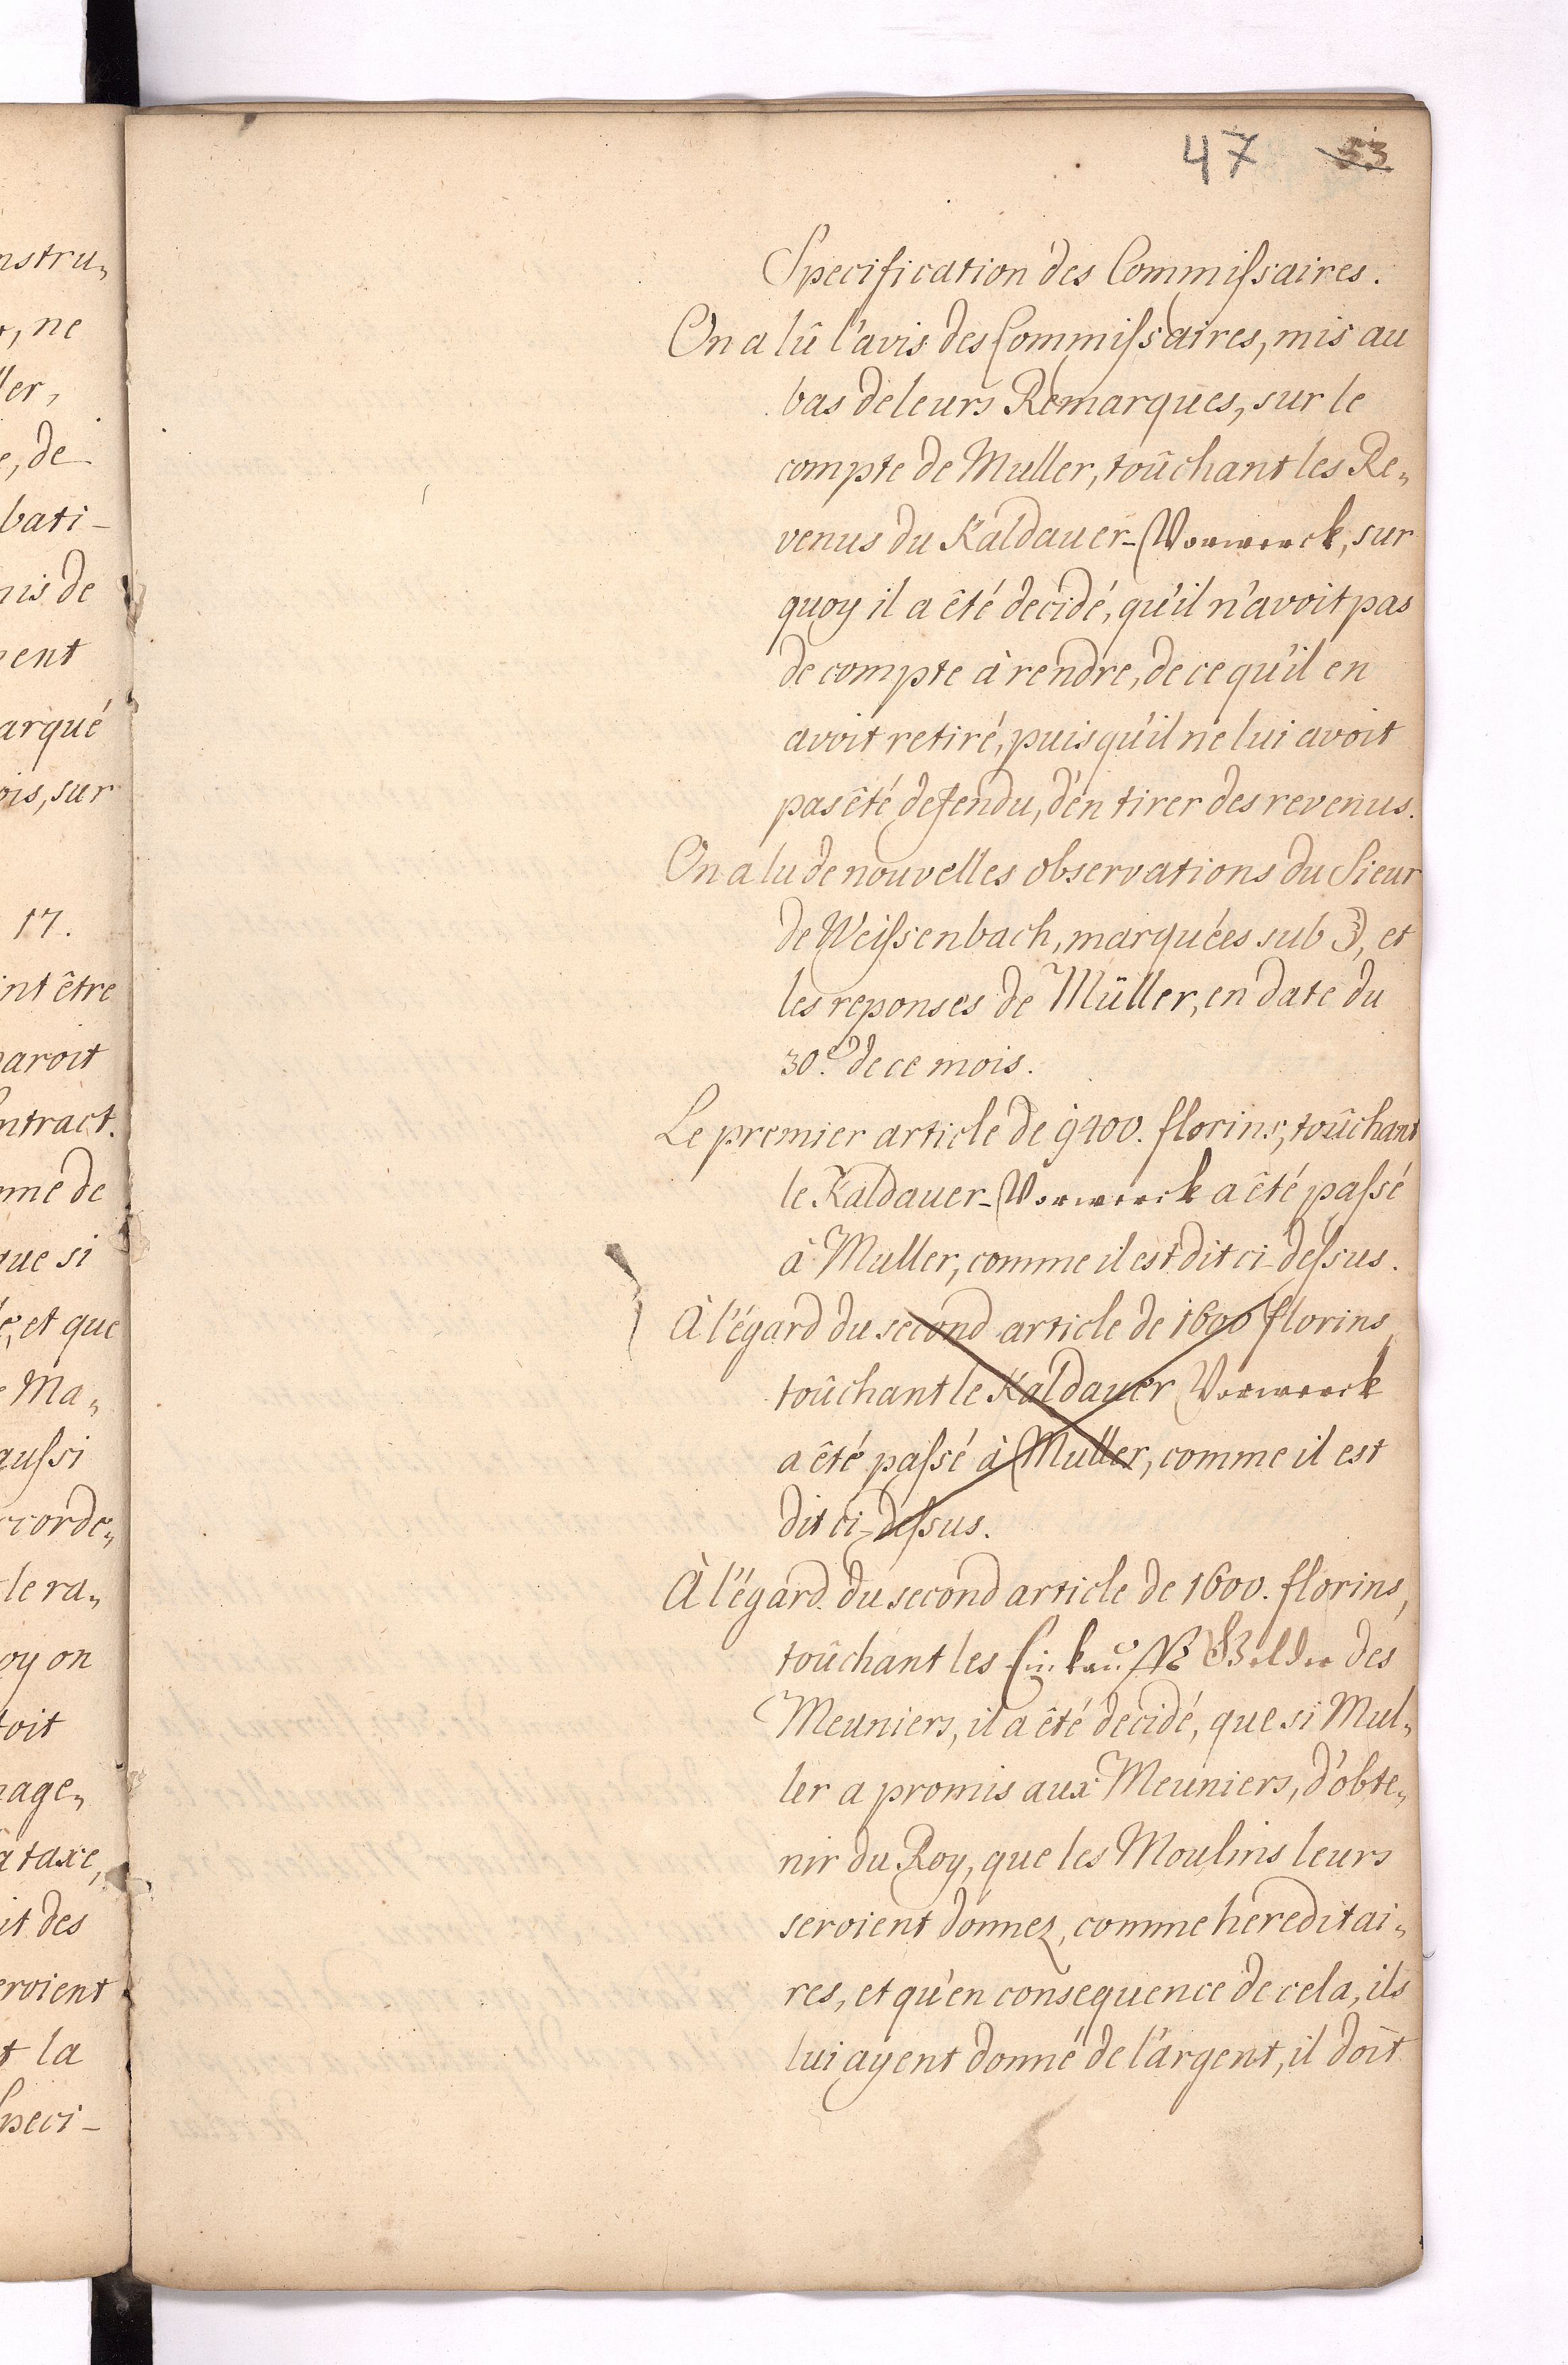 nstru„
o, ne
ler,
e, de
bati-
mis de
ment
arqué
ois, sur
17.
int être
paroit
ntract.
mme de
que si
é, et que
e Ma„
aussi
ccorde„
le ra„
oy on
toit
nage„
a taxe,
it des
eroient
t la
Speci-
47 53
Specification des Commissaires.
On a lû l'avis des Commissaires, mis au
bas de leurs Remarques, sur le
compte de Muller, toûchant les Re„
venus du Kaldauer-Vorwerck, sur
quoy il a êté decidé, qu'il n'avoit pas
de compte à rendre, de ce qu'il en
avoit retiré, puis qu'il ne lui avoit
pas êté defendu, d'en tirer des revenus.
On a lu de nouvelles observations du Sieur
de Weissenbach, marquées sub 3), et
les reponses de Müller, en date du
30.e de ce mois.
Le premier article de 9400. florins, toûchant
le Kaldauer-Vorwerck a êté passé
à Muller, comme il est dit ci-dessus.
À l'égard du second article de 1600 florins,
toûchant le Kaldauer Vorwerck
a êté passé à Muller, comme il est
dit ci-dessus.
À l'égard du second article de 1600. florins,
toûchant les Einkauffs Gelder des
Meuniers, il a êté decidé, que si Mul„
ler a promis aux Meuniers, d'obte„
nir du Roy, que les Moulins leurs
seroient donnez, comme hereditai„
res, et qu'en consequence de cela, ils
lui ayent donné de l'argent, il doit